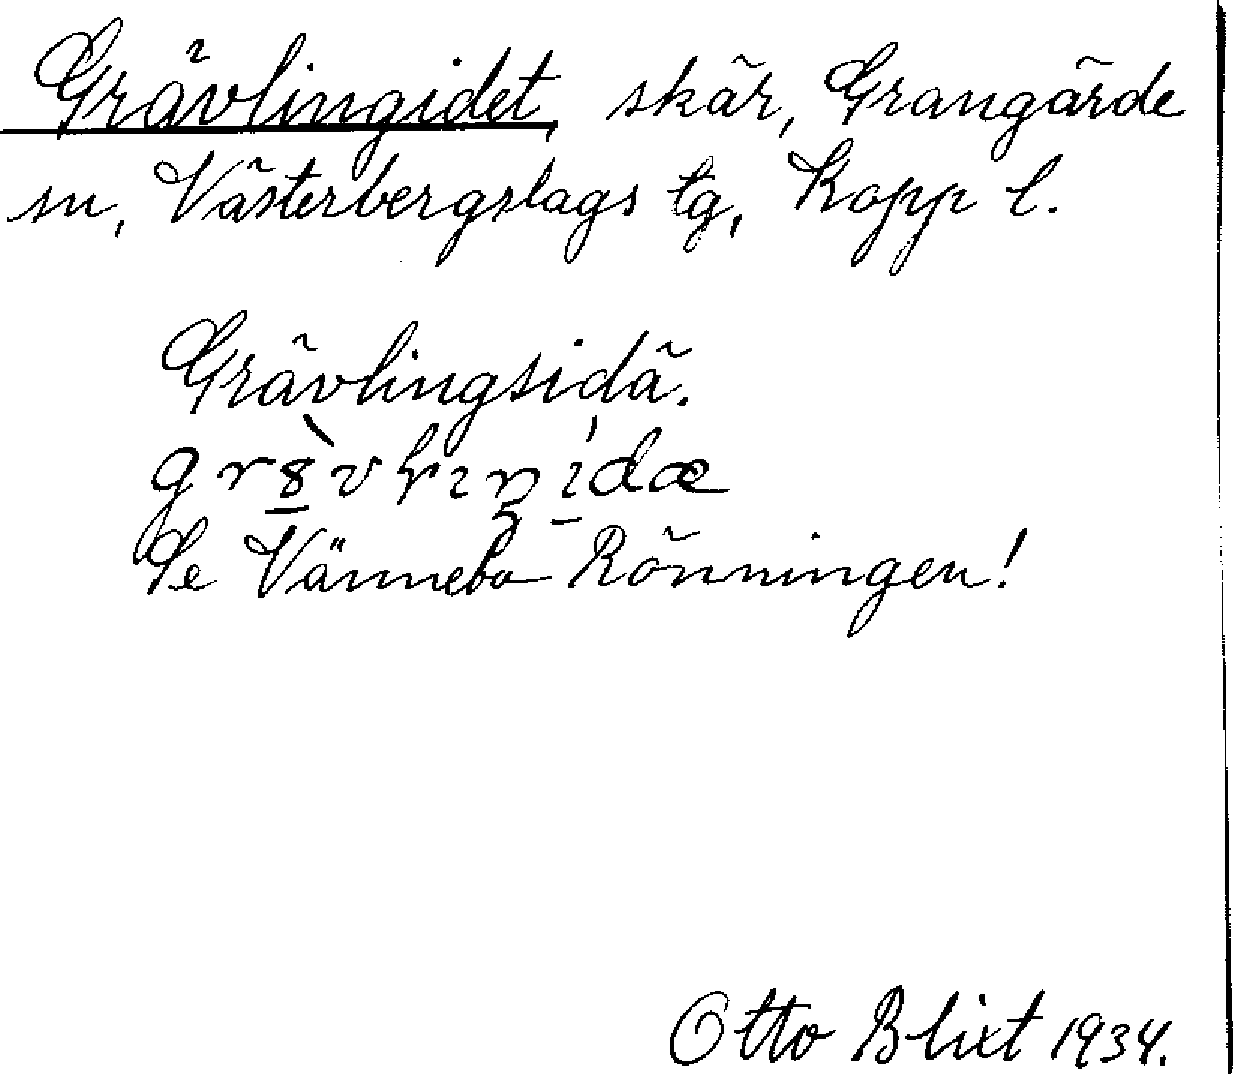 Grävlingidet, skär, Grangärde
sn, Västerbergslags tg, Kopp l.
Grävlingsidä.
grȣ̠̀vlıŋi̠dæ
Se Vännebo Rönningen!
Otto Blixt 1934.